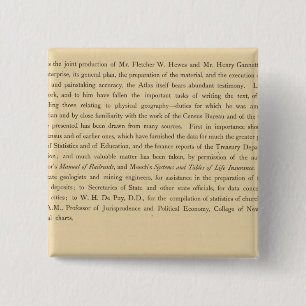 s the joint production of Mr. Fletcher W. Hewes and Mr. Henry Gannett
nterprise, its general plan, the preparation of the material, and the execution
and painstaking accuracy, the Atlas itself bears abundant testimony.
ork, and to him have fallen the important tasks of writing the text, of
ding those relating to physical geography—duties for which he was
an and by close familiarity with the work of the Census Bureau and of the
presented has been drawn from many sources. First in importance
census and of earlier ones, which have furnished the data for much the greater
of Statistics and of Education, and the finance reports of the Treasury
ion; and much valuable matter has been taken, by permission of the
's Manual of Railroads, and Meech's Systems and Tables of Life Insurance.
tate geologists and mining engineers, for assistance in the preparation of
deposits; to Secretaries of State and other state officials, for data
cities; to W. H. De Puy, D.D., for the compilation of statistics of
A.M., Professor of Jurisprudence and Political Economy, College of New
al charts.